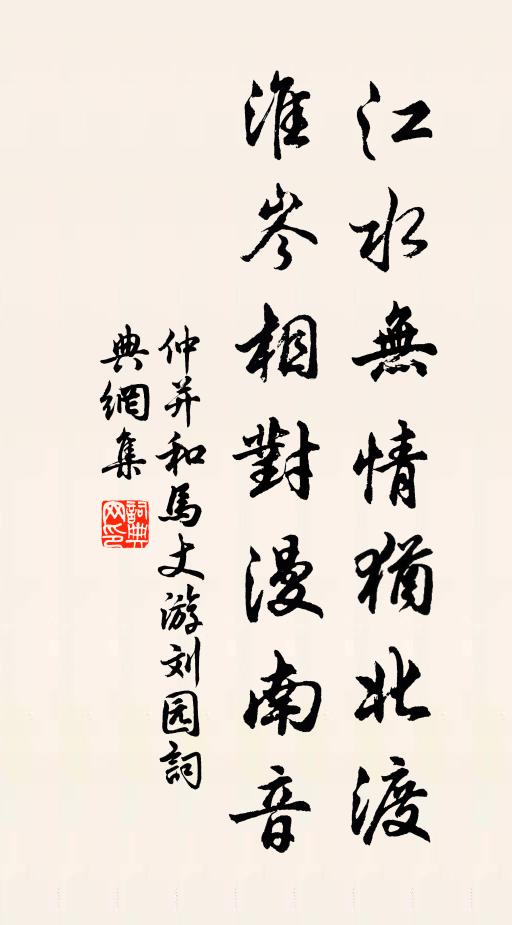 江水無情猶北渡
淮岑相對漫南音
仲并和馬丈游刘园詞
典網集
詞典
网印